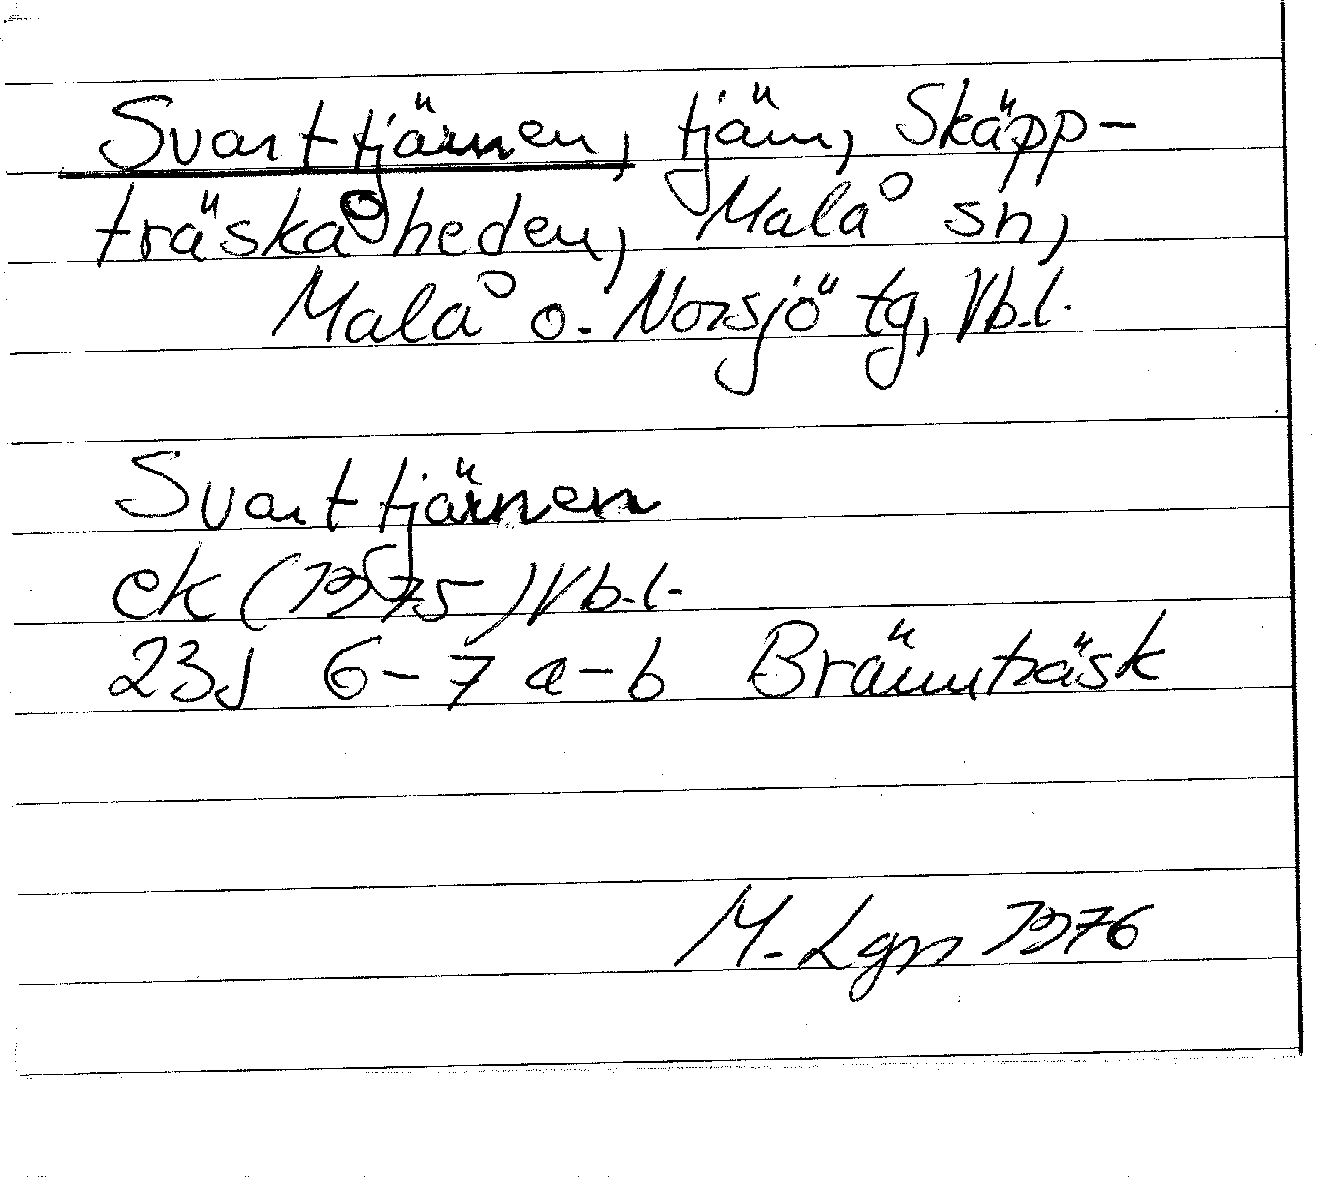 Svarttjärnen, tjärn, Skäpp-
träskåheden, Malå sn,
Malå o. Norsjö tg, Vb.l.
Svarttjärnen
ek (1975) Vb.l.
23J 6-7 a-b Brännträsk
M. Lgn 1976